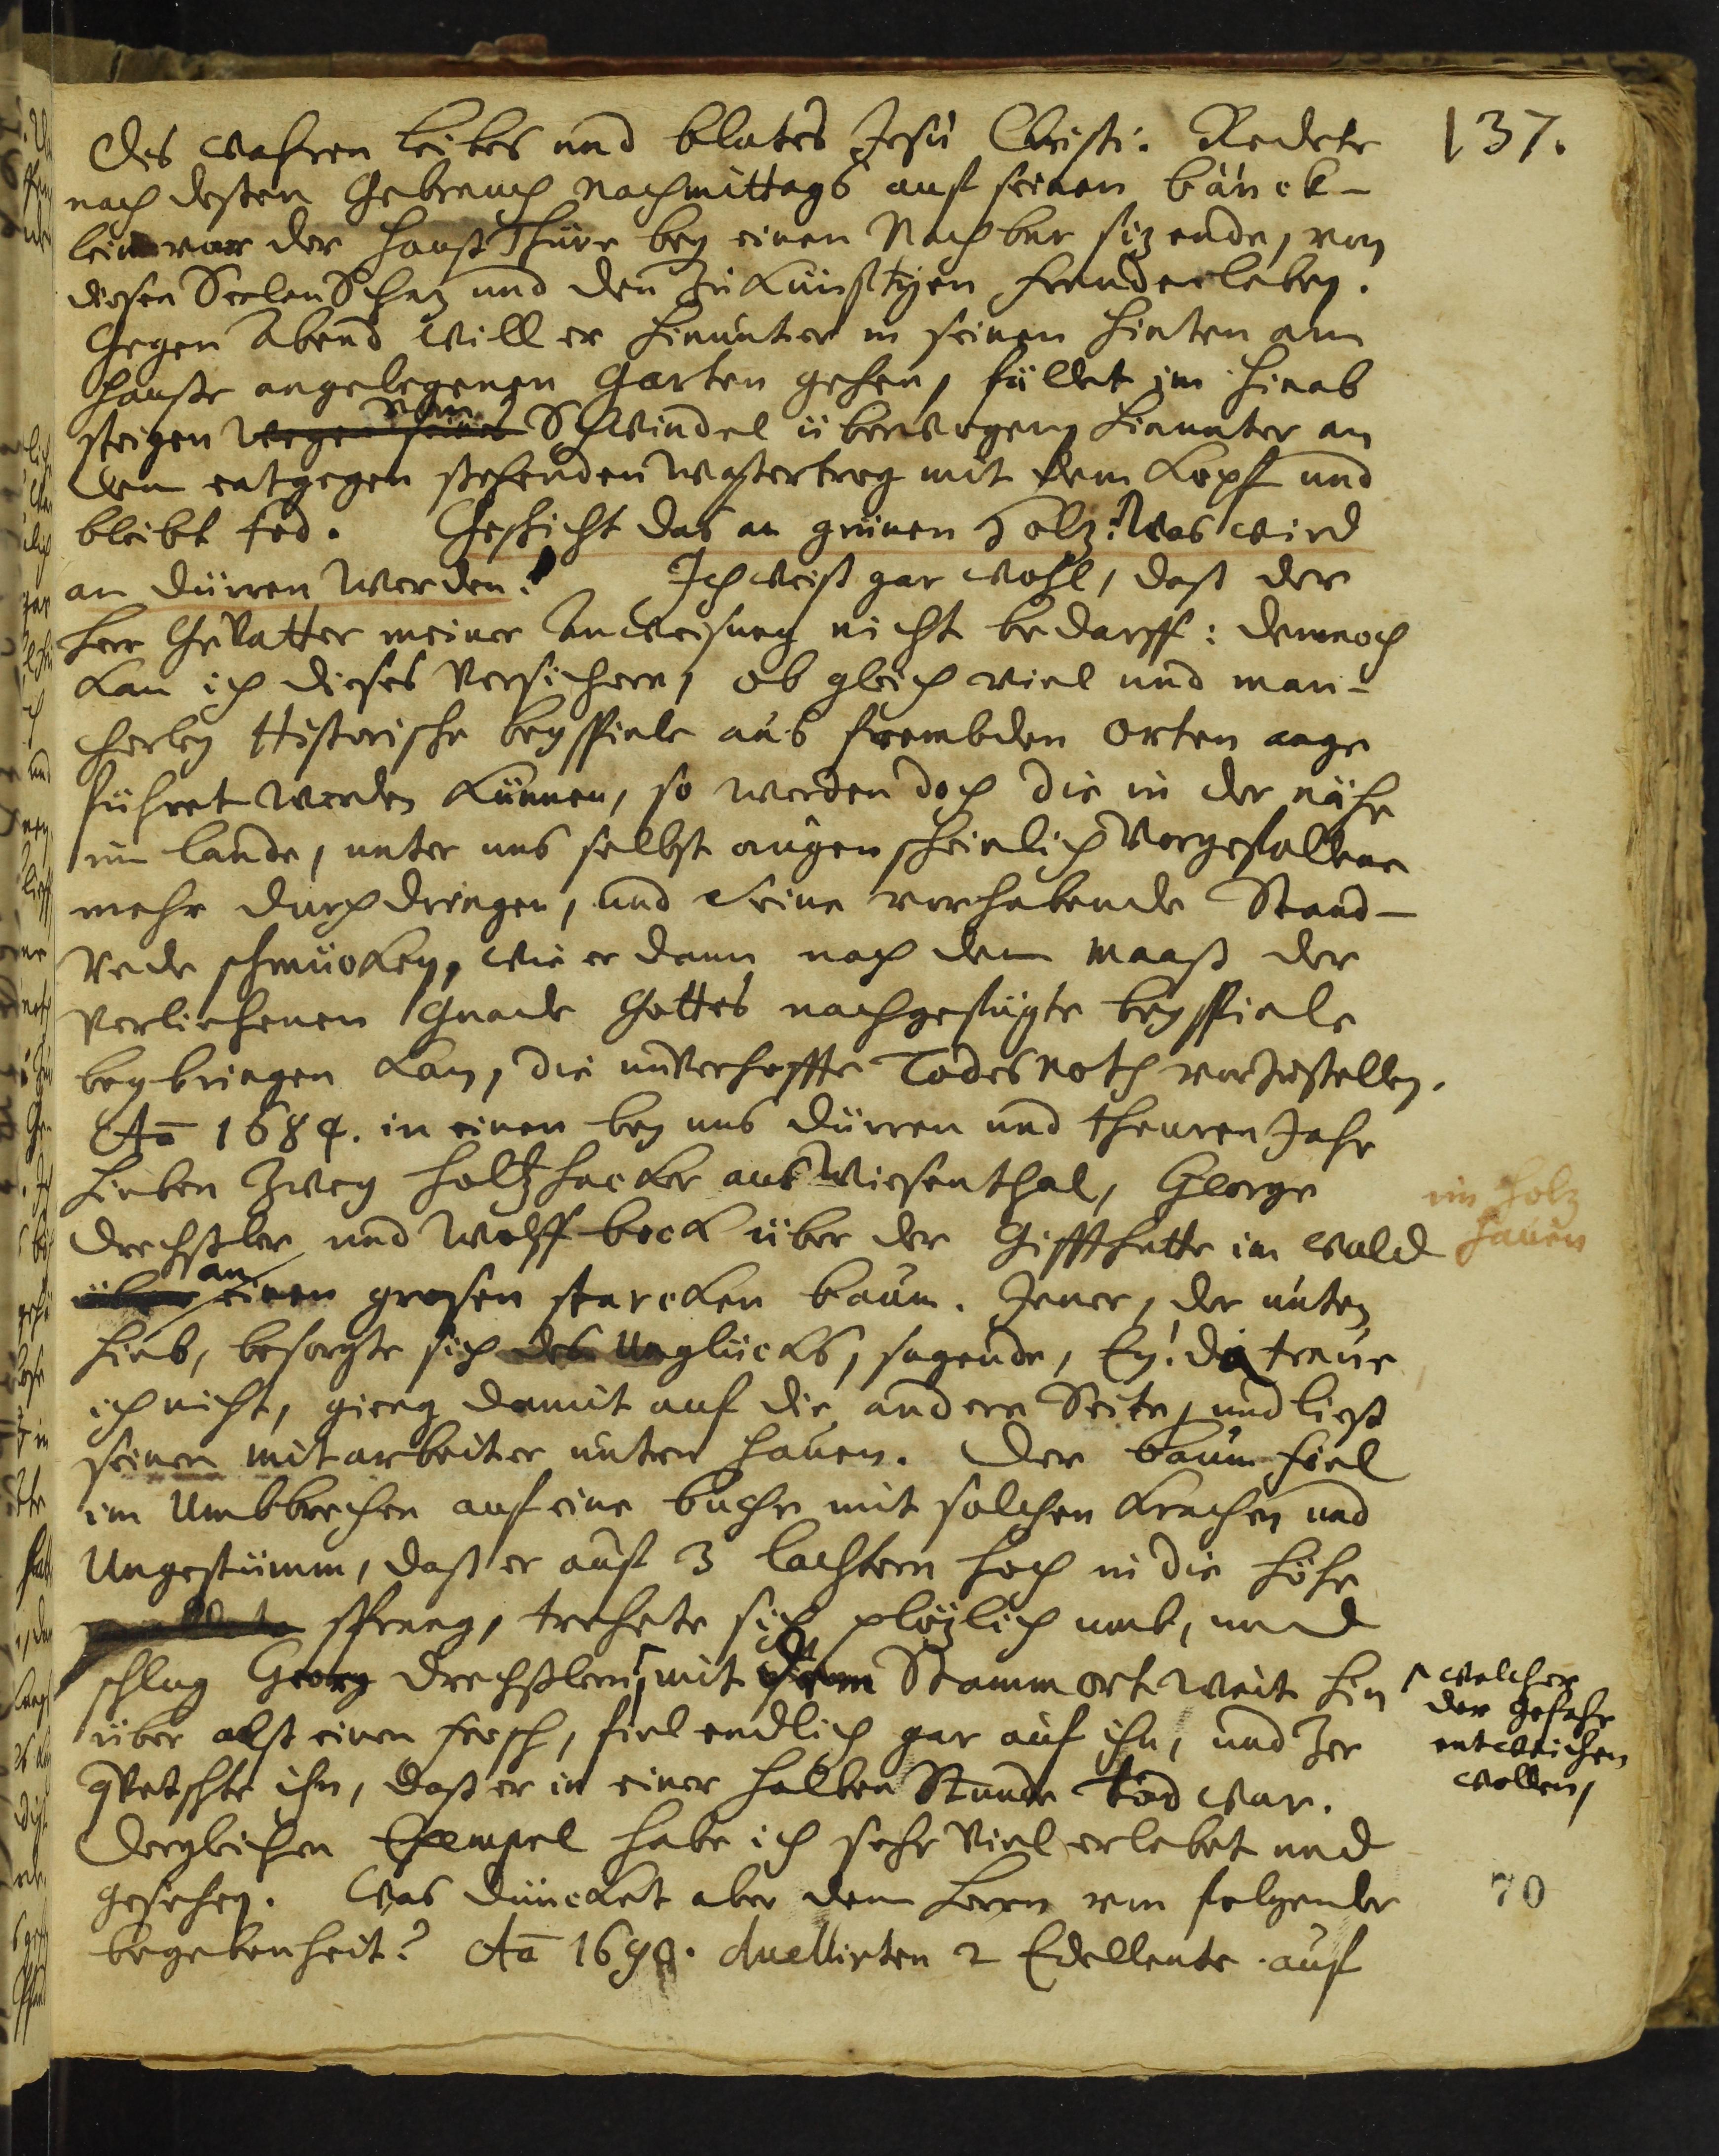 137.
des wahren Leibes und blutes Jesu Christi. Redete
nach deßen Gebrauch nachmittags auf seinen bänck-
lein vor der Haußthüre bey einen Nachbar sizende, von
diesen SeelenSchaz und den zukünfftigen freudenleben.
Gegen Abend will er hinunter in seinen hinten am
Hauße angelegenen Garten gehen, fället im hinab
steigen wegen seines vom Schwindel überwogen hinunter an
den entgegen stehenden Waßertrog mit dem Kopf und
bleibt tod. Geschicht das an grünen Holz: Was wird
an dürren werden? Ich weiß gar wohl, daß der
Herr Gevatter meiner Anweisung nicht bedarff: dennoch
kan ich dieses versichern, ob gleich viel und man-
cherley Historische beyspiele aus frembden Orten ange
führet werden können, so werden doch die in der nähe
im lande, unter uns selbst augenscheinlich vorgefallene
mehr durchdringen, und seine vorhabende Stand-
rede schmücken, wie er dann nach dem Maaß der
verliehenen Gnade Gottes nachgefügte beyspiele
beybringen kan, die unverhoffte Todesnoth vorzustellen.
Aō 1684. in einen bey uns dürren und theuren Jahr
hieben zwey Holzhacker aus Wiesenthal, George
Drechßler und Wolff Bock über der Giffthütte im Wald
im Holz
hauen
an einen grosen starcken baum. Jener, der unten
hieb, besorgte sich des Unglücks, sagende, Ey! da traue
ich nicht, gieng damit auf die andere Seite, und ließ
seinen mitarbeiter unten hauen. Der baum fiel
im Umbbrechen auf eine buche mit solchen krachen und
Ungestümm, daß er auf 3 lachtern hoch in die höhe
sprang, trehete sich plözlich umb, und
schlug Georg Drechßlern, mit dem Stammort weit hin
welcher
der gefahr
entweichen
wollen,
über alß einen frosch, fiel endlich gar auf ihn, und zer
qvetschte ihn, daß er in einer halben Stunde tod war.
Dergleichen Exempel habe ich sehr viel erlebet und
gesehen. Was düncket aber dem Herrn von folgender
70
begebenheit? Aō 1690. duellirten 2 Edelleute auf